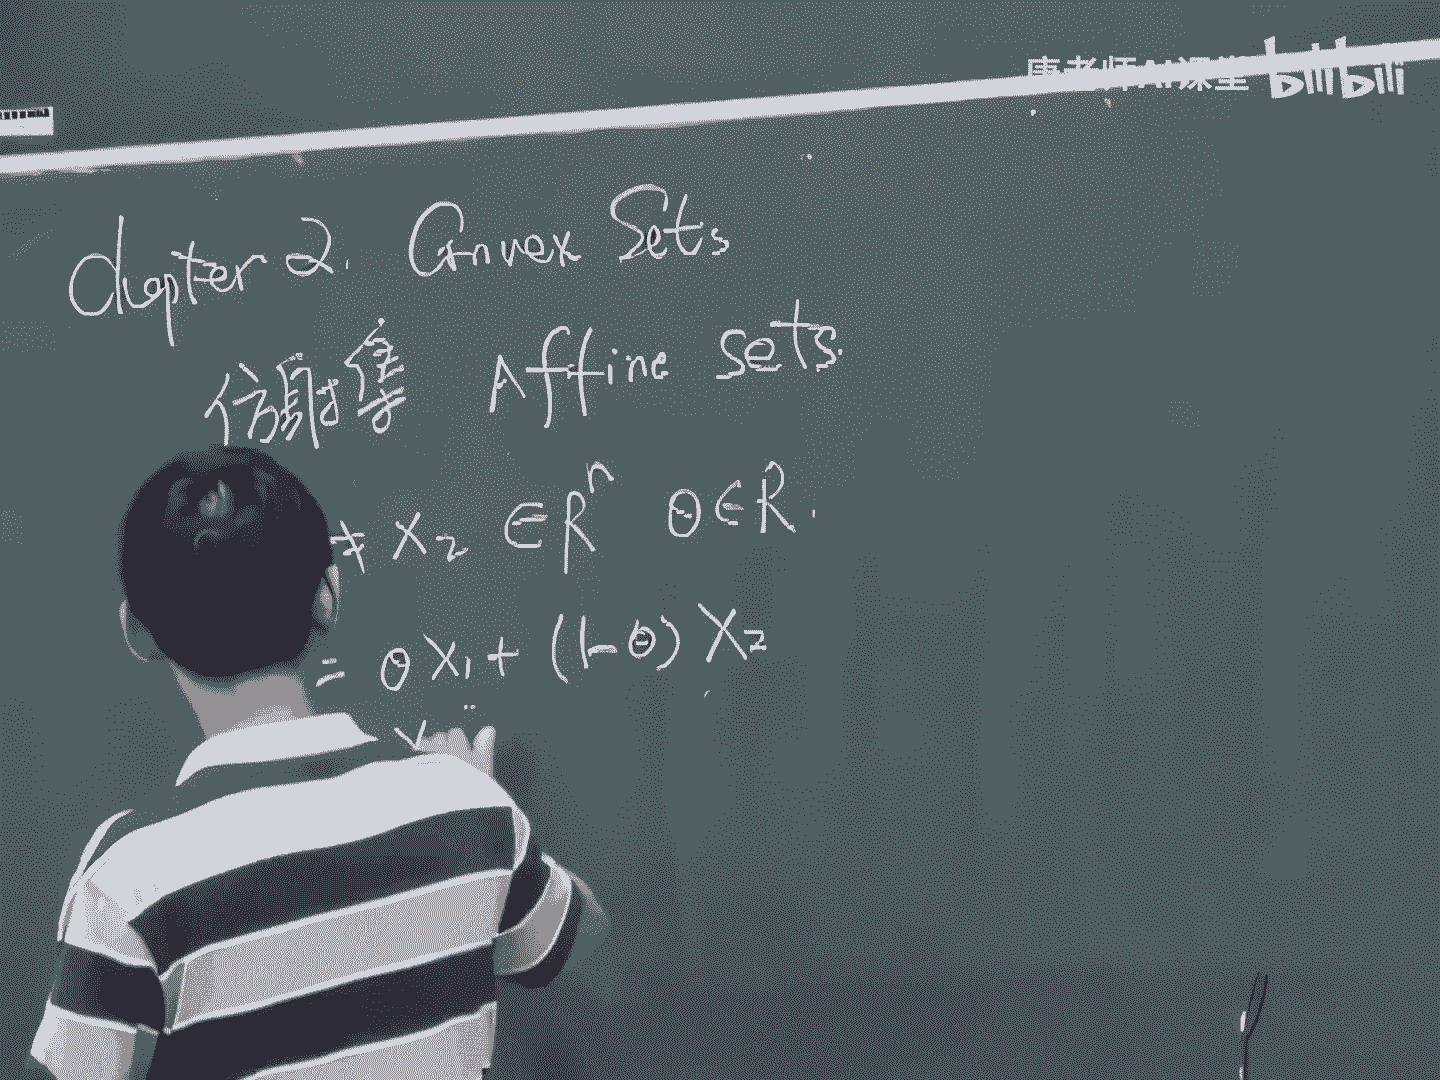 唐老师AI课堂 bilibili
Chapter 2. Convex Sets
仿射集 Affine sets.
≠ X₂ ∈ Rⁿ θ ∈ R.
= θ X₁ + (1-θ) X₂